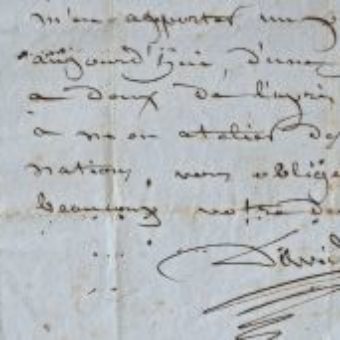 m'en apporter un
aujourd'hui d'une
a deux de
a mon atelier des
nation, vous oblige
beaucoup votre de
David